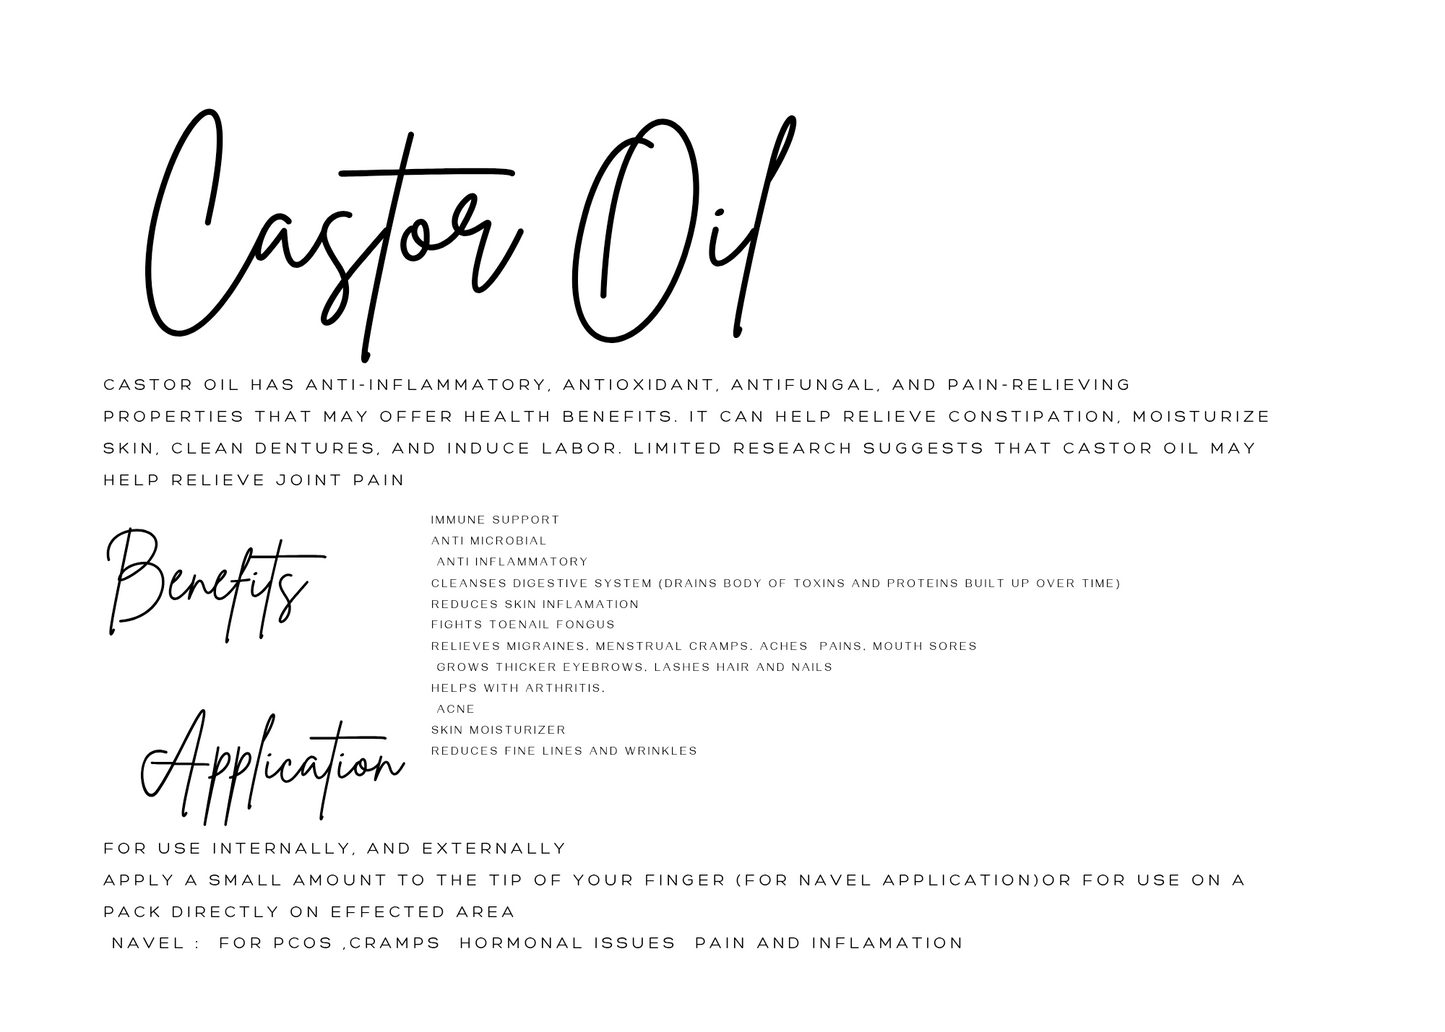 Castor Oil
CASTOR OIL HAS ANTI-INFLAMMATORY, ANTIOXIDANT, ANTIFUNGAL, AND PAIN-RELIEVING
PROPERTIES THAT MAY OFFER HEALTH BENEFITS. IT CAN HELP RELIEVE CONSTIPATION, MOISTURIZE
SKIN, CLEAN DENTURES, AND INDUCE LABOR. LIMITED RESEARCH SUGGESTS THAT CASTOR OIL MAY
HELP RELIEVE JOINT PAIN
Benefits
IMMUNE SUPPORT
ANTI MICROBIAL
ANTI INFLAMMATORY
CLEANSES DIGESTIVE SYSTEM (DRAINS BODY OF TOXINS AND PROTEINS BUILT UP OVER TIME)
REDUCES SKIN INFLAMATION
FIGHTS TOENAIL FONGUS
RELIEVES MIGRAINES, MENSTRUAL CRAMPS, ACHES PAINS, MOUTH SORES
GROWS THICKER EYEBROWS, LASHES HAIR AND NAILS
HELPS WITH ARTHRITIS,
ACNE
SKIN MOISTURIZER
REDUCES FINE LINES AND WRINKLES
Application
FOR USE INTERNALLY, AND EXTERNALLY
APPLY A SMALL AMOUNT TO THE TIP OF YOUR FINGER (FOR NAVEL APPLICATION)OR FOR USE ON A
PACK DIRECTLY ON EFFECTED AREA
NAVEL : FOR PCOS ,CRAMPS HORMONAL ISSUES PAIN AND INFLAMATION